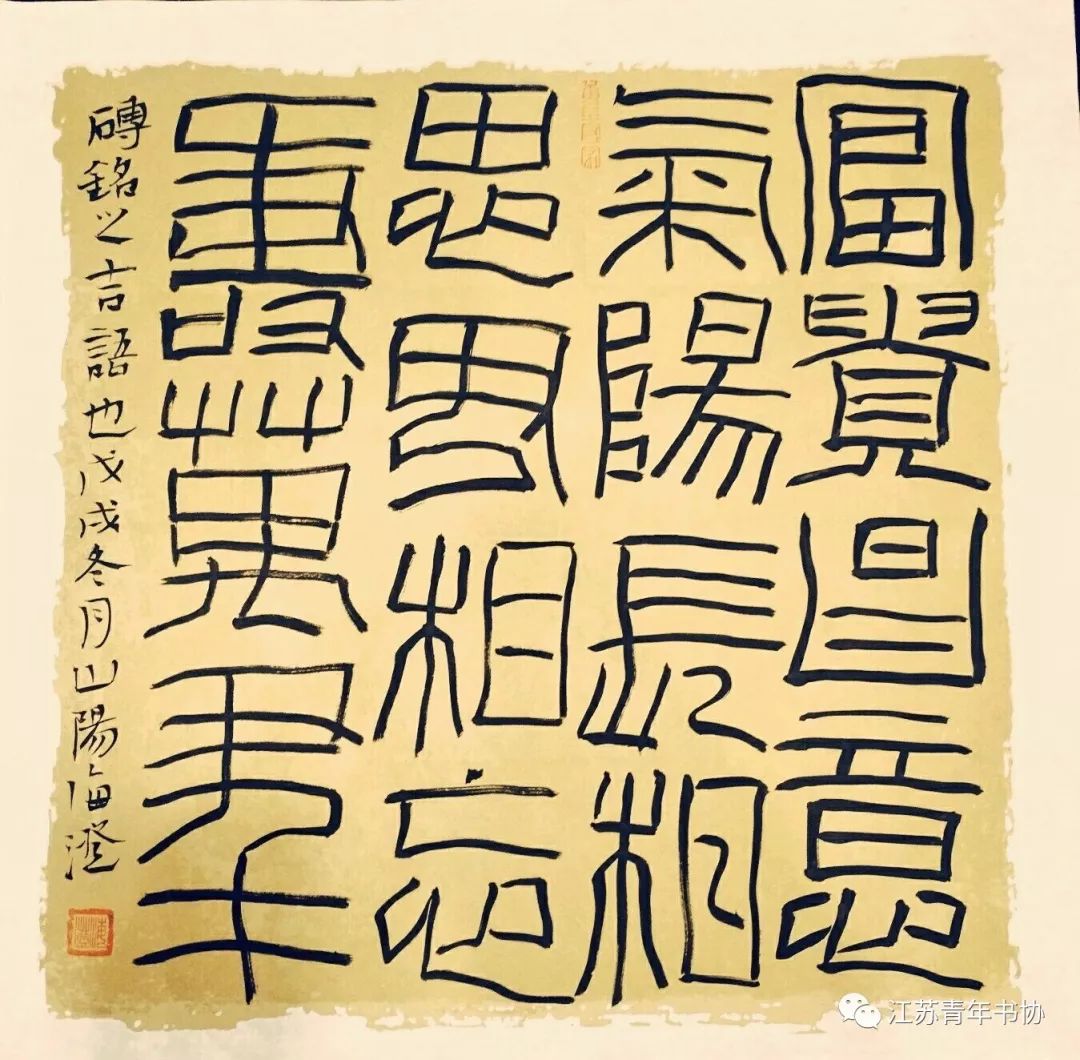 富貴昌意
氣陽長相
思毋相忘
壽萬年
磚銘之吉語也戊戌冬月山陽海澄
江苏青年书协